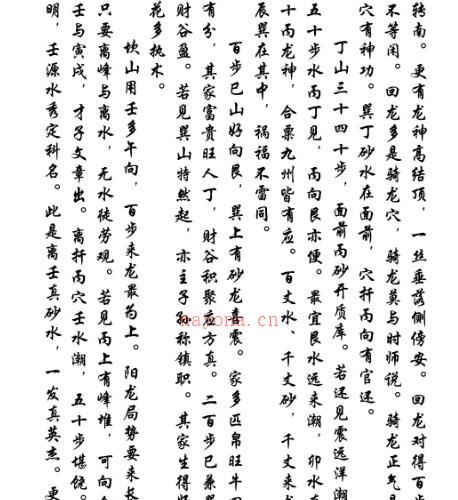 转南。更有龙神高结顶，一丝垂落侧傍安。回龙对得百步
不等闲。回龙多是骑龙穴，骑龙莫与时师说。骑龙正气
穴有神功。巽丁砂水在面前，穴扦丙向有官迁。
丁山三十四十步，面前丙砂开质库。若还见震远洋潮
五十步水丙丁见，丙向艮亦便。最宜艮水远来潮，卯水
十丙龙神，合粟九州皆有应。百丈水、千丈砂，千丈来
辰巽在其中，祸福不雷同。
百步巳山好向艮，巽上有砂龙喜震。家多匹帛旺牛
有分，其家富贵旺人丁，财谷积聚应方真。二百步巳兼
财谷盈。若见巽山特然起，亦主子孙称镇职。其家生得
花多执术。
坎山用壬多午向，百步来龙最为上。阳龙局势要来长
只要离峰与离水，无水徒劳观。若见丙上有峰堆，可向
壬与寅戌，才子文章出。离扦丙穴壬水潮，五十步堪饶。
明，壬源水秀定科名。此是离壬真砂水，一发真英杰。更